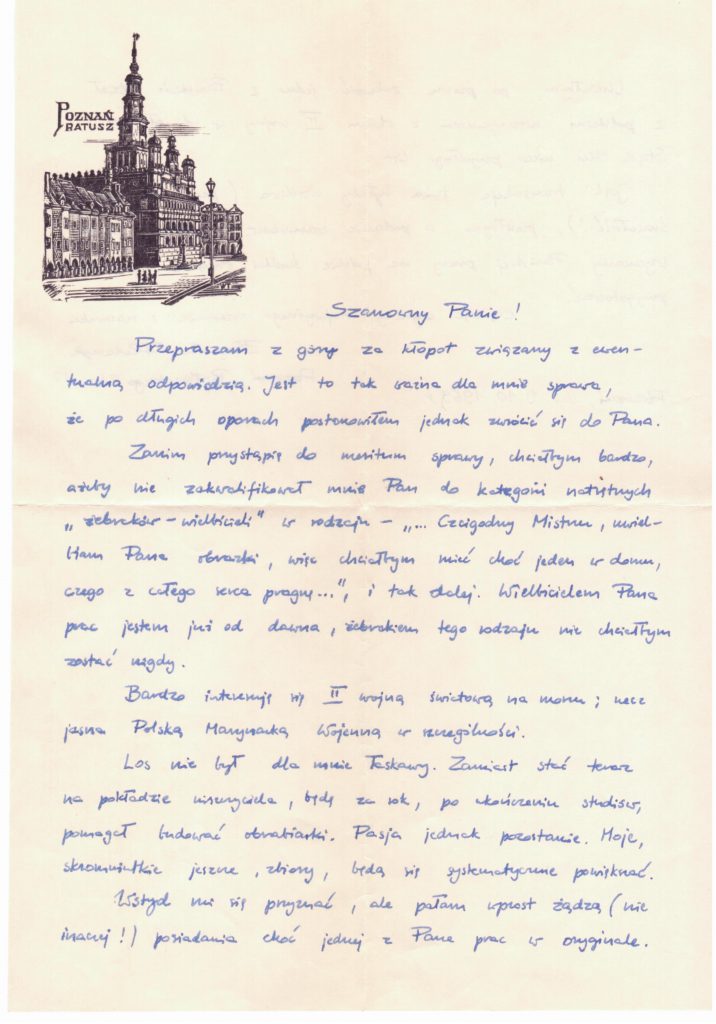 POZNAŃ
RATUSZ
Szanowny Panie!
Przepraszam z góry za kłopot związany z ewen-
tualną odpowiedzią. Jest to tak ważna dla mnie sprawa,
że po długich oporach postanowiłem jednak zwrócić się do Pana.
Zanim przystąpię do meritum sprawy, chciałbym bardzo,
ażeby nie zakwalifikował mnie Pan do kategorii natrętnych
„żebraków – wielbicieli" w rodzaju – „... Czcigodny Mistrzu, uwiel-
biam Pana obrazki, więc chciałbym mieć choć jeden w domu,
czego z całego serca pragnę...", i tak dalej. Wielbicielem Pana
prac jestem już od dawna, żebrakiem tego rodzaju nie chciałbym
zostać nigdy.
Bardzo interesuję się II wojną światową na morzu; rzecz
jasna Polską Marynarką Wojenną w szczególności.
Los nie był dla mnie łaskawy. Zamiast stać teraz
na pokładzie niszczyciela, będę za rok, po ukończeniu studiów,
pomagał budować obrabiarki. Pasja jednak pozostanie. Moje,
skromniutkie jeszcze, zbiory, będą się systematycznie powiększać.
Wstyd mi się przyznać, ale pałam wprost żądzą (nie
inaczej!) posiadania choć jednej z Pana prac w oryginale.